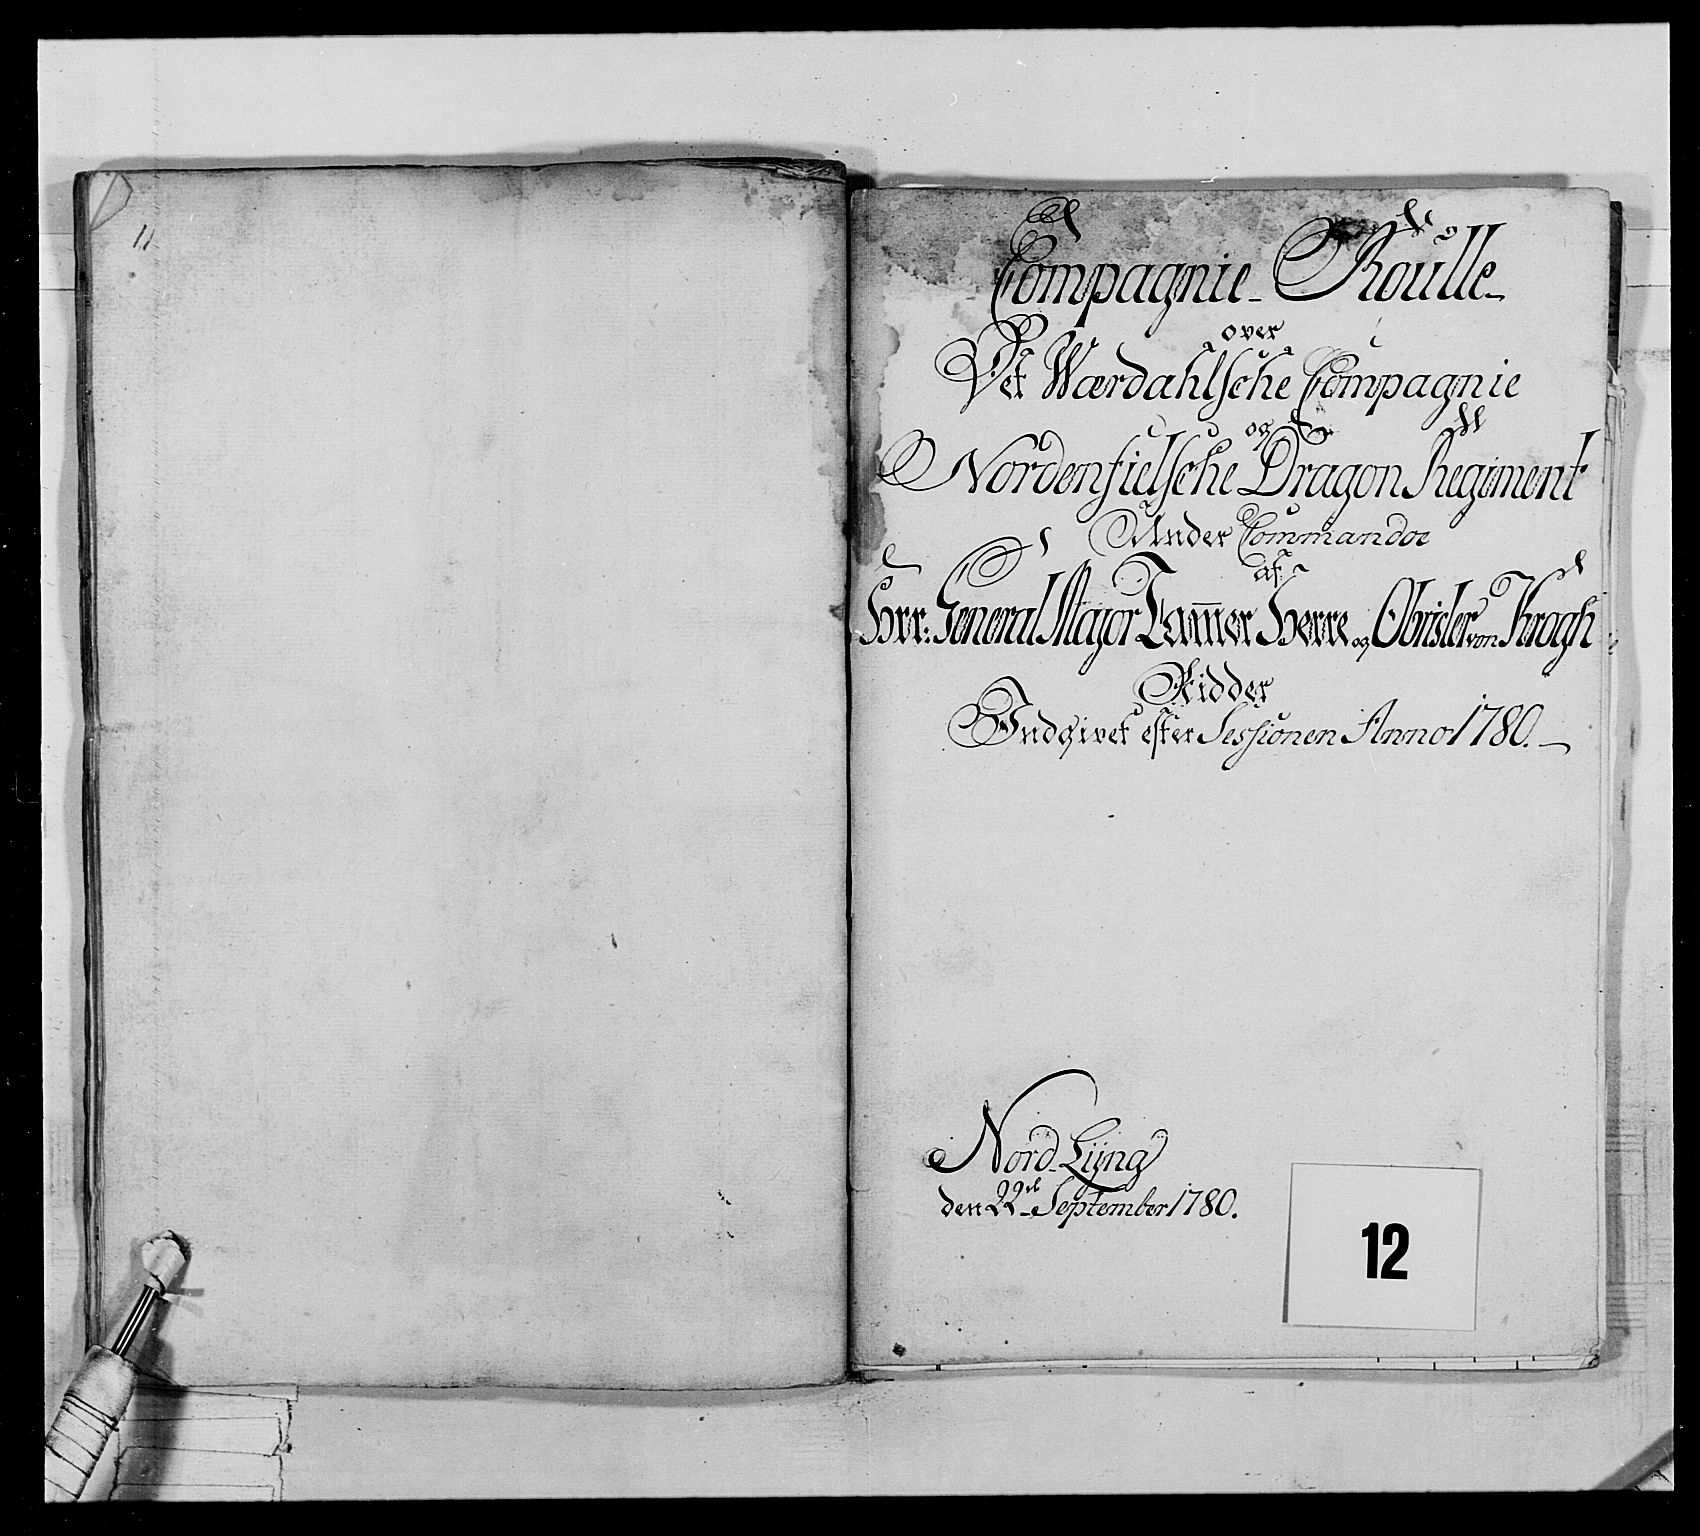 11
Compagnie Roulle
over
Det Wærdahlsche Compagnie
og
Nordenfielsche Dragon Regiment
Under Commandoe
af
Hrr: General Major Kam̄er Herre og Obrister von Krogh
Ridder
Indgivet efter Sessionen Anno 1780.
Nord-Lÿng
den 22de September 1780.
12